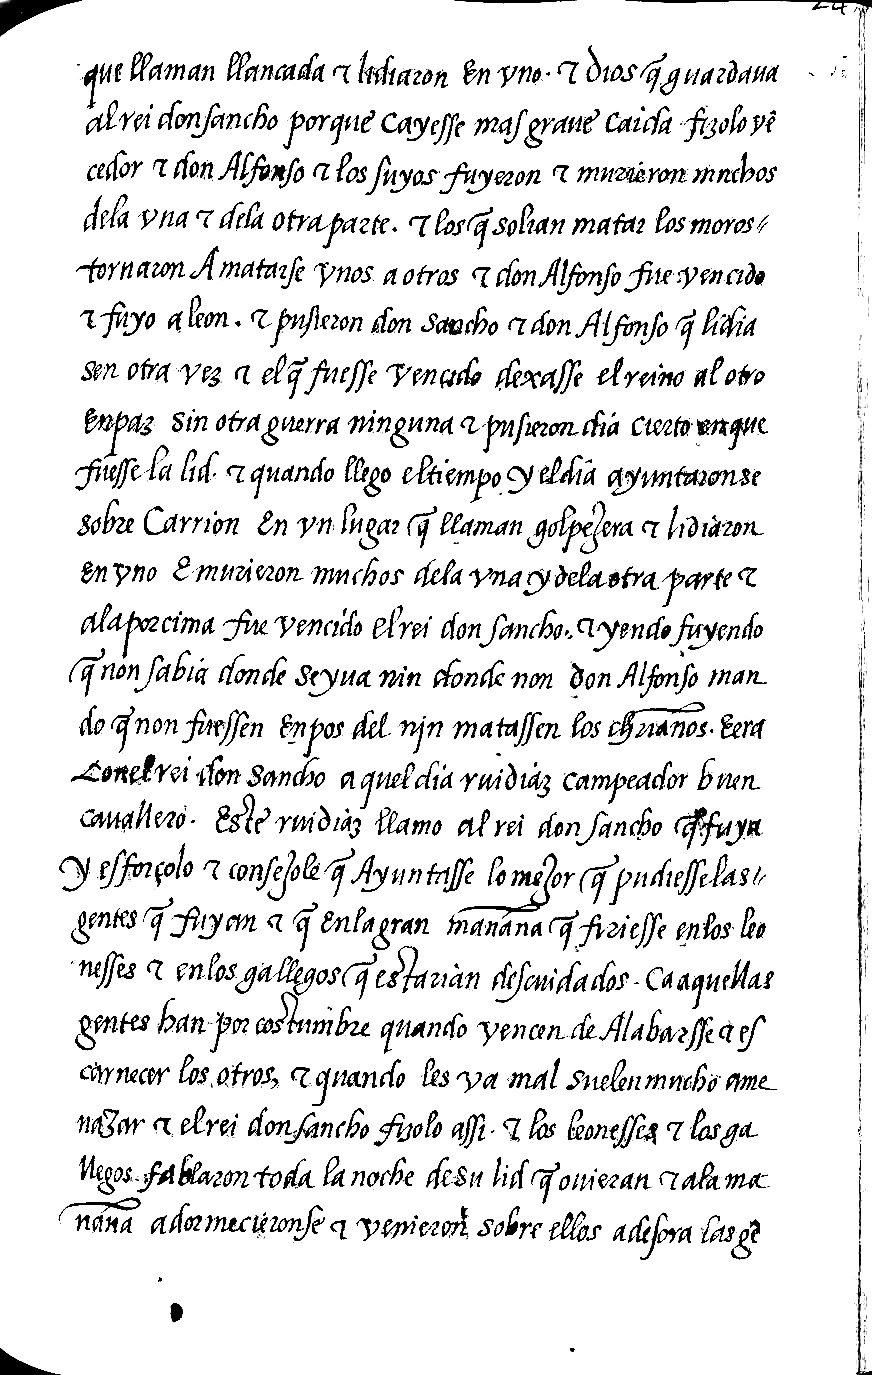 24
que llaman llancada τ lidiaron En vno · τ Dios q̃ guardaua
al rei don sancho porque cayesse mas graue caida fizolo vẽ
cedor τ don Alfonso τ los suyos fuyeron τ murieron muchos
dela vna τ dela otra parte. τ los q̃ solian matar los moros
tornaron A matarse vnos a otros τ don Alfonso fue vencido
τ fuyo a leon. τ pusieron don sancho τ don Alfonso q̃ lidia
sen otra vez τ el q̃ fuesse vencido dexasse el reino al otro
En paz sin otra guerra ninguna τ pusieron dia cierto en que
fuesse la lid. τ quando llego el tiempo y el dia ayuntaronse
sobre Carrion En vn lugar q̃ llaman golpejera τ lidiaron
en vno E murieron muchos dela vna y dela otra parte τ
ala por cima fue vencido El rei don sancho. τ yendo fuyendo
q̃ non sabia donde se yua nin donde non Don Alfonso man
do q̃ non fuessen En pos del nin matassen los chr̃ianos. E era
Con el rei don sancho a quel dia ruidiaz campeador buen
cauallero. Este ruidiaz llamo al rei don sancho q̃ fuya
y esforçolo τ consejole q̃ Ayuntasse lo mejor q̃ pudiesse las
gentes q̃ fuyan τ q̃ En la gran mañana q̃ firiesse en los leo
nesses τ en los gallegos q̃ estarian descuidados. Ca aquellas
gentes han por costumbre quando vencen de Alabarsse τ es
carnecer los otros, τ quando les va mal suelen mucho ame
nazar τ el rei don sancho fizolo assi. τ los leonesses τ los ga
llegos fablaron toda la noche de su lid q̃ ouieran τ ala ma
nãna adormecieronse τ venieron sobre ellos a desora las gẽ